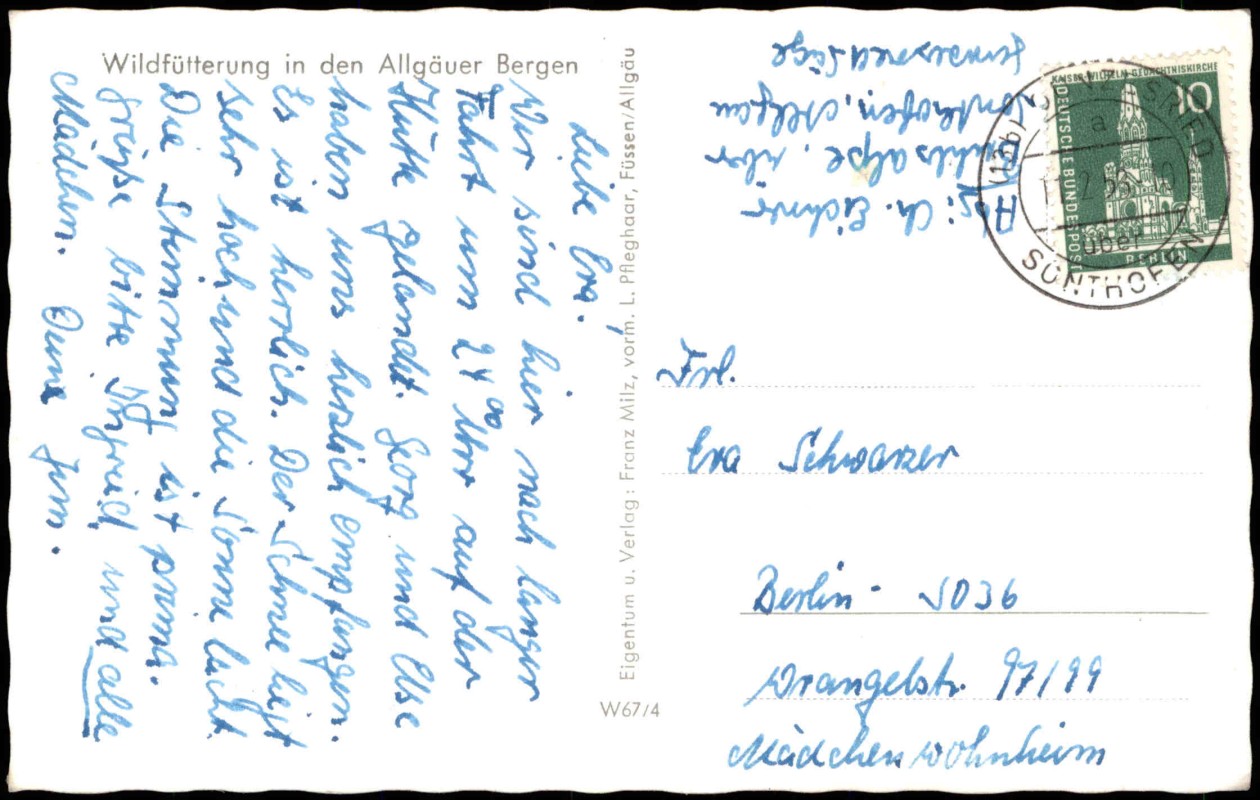 Wildfütterung in den Allgäuer Bergen
Liebe Eva,
Wir sind hier nach langer
Fahrt um 24⁰⁰ Uhr auf der
Hütte gelandet. Georg und Else
haben uns herzlich empfangen.
Es ist herrlich. Der Schnee liegt
sehr hoch und die Sonne lacht.
Die Stimmung ist prima.
Grüße bitte und alle
Mädchen. Deine
Eigentum u. Verlag: Franz Milz, vorm. L. Pfleghaar, Füssen/Allgäu
W67/4
Abs: Ch.
über
Sonthofen, Allgäu
KAISER-WILHELM-GEDÄCHTNISKIRCHE
10
DEUTSCHE BUNDESPOST
BERLIN
(13b)
a
über
SONTHOFEN
Frl.
Eva Schwarzer
Berlin - SO36
Wrangelstr. 97/99
Mädchenwohnheim